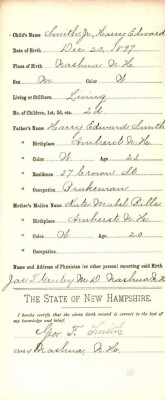 Child's Name Smith, Jr, Harry Edward
Date of Birth Dec 20, 1897
Place of Birth Nashua N.H.
Sex M Color W
Living or Stillborn Living
No. of Children, 1st, 2d, etc. 2d
Father's Name Harry Edward Smith
" Birthplace Amherst N.H.
" Color W Age 25
" Residence 27 Crown St
" Occupation Brakeman
Mother's Maiden Name Kate Mabel
" Birthplace Amherst N.H.
" Color W Age 20
" Occupation
Name and Address of Physician (or other person) reporting said Birth
Jas. T. M.D. Nashua N.H.
THE STATE OF NEW HAMPSHIRE.
I hereby certify that the above birth record is correct to the best
of my knowledge and belief.
Geo. F. Smith
Clerk of Nashua N.H.